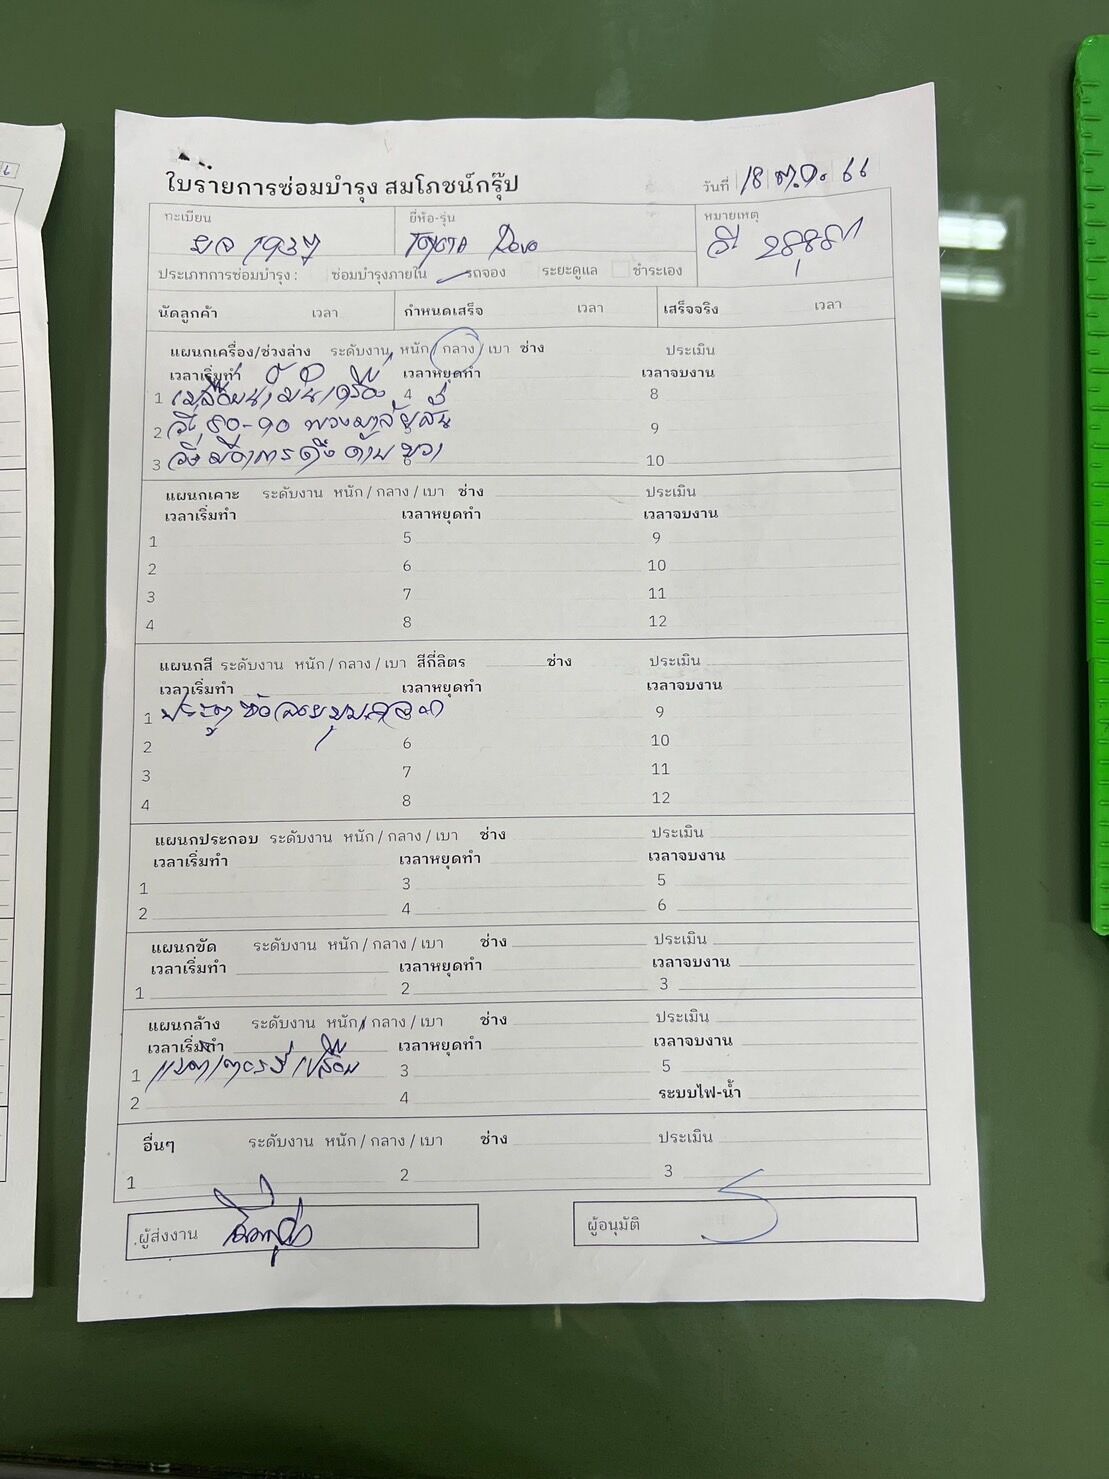 ใบรายการซ่อมบำรุง สมโภชน์กรุ๊ป
วันที่ 18 ต.ค. 66
ทะเบียน ยี่ห้อ-รุ่น หมายเหตุ
TOYOTA Revo
ประเภทการซ่อมบำรุง : ซ่อมบำรุงภายใน รถจอง ระยะดูแล ชำระเอง
นัดลูกค้า เวลา กำหนดเสร็จ เวลา เสร็จจริง เวลา
แผนกเครื่อง/ช่วงล่าง ระดับงาน หนัก / กลาง / เบา ช่าง ประเมิน
เวลาเริ่มทำ เวลาหยุดทำ เวลาจบงาน
1 เปลี่ยนน้ำมันเครื่อง 4 8
2 วิ่ง 80-90 พวงมาลัยสั่น 9
3 วิ่งมีอาการดึงด้านขวา 6 10
แผนกเคาะ ระดับงาน หนัก / กลาง / เบา ช่าง ประเมิน
เวลาเริ่มทำ เวลาหยุดทำ เวลาจบงาน
1 5 9
2 6 10
3 7 11
4 8 12
แผนกสี ระดับงาน หนัก / กลาง / เบา สีกี่ลิตร ช่าง ประเมิน
เวลาเริ่มทำ เวลาหยุดทำ เวลาจบงาน
1 ประตู 9
2 6 10
3 7 11
4 8 12
แผนกประกอบ ระดับงาน หนัก / กลาง / เบา ช่าง ประเมิน
เวลาเริ่มทำ เวลาหยุดทำ เวลาจบงาน
1 3 5
2 4 6
แผนกขัด ระดับงาน หนัก / กลาง / เบา ช่าง ประเมิน
เวลาเริ่มทำ เวลาหยุดทำ เวลาจบงาน
1 2 3
แผนกล้าง ระดับงาน หนัก / กลาง / เบา ช่าง ประเมิน
เวลาเริ่มทำ เวลาหยุดทำ เวลาจบงาน
1 แบตเตอรี่เปลี่ยน 3 5
2 4 ระบบไฟ-น้ำ
อื่นๆ ระดับงาน หนัก / กลาง / เบา ช่าง ประเมิน
1 2 3
ผู้ส่งงาน ผู้อนุมัติ